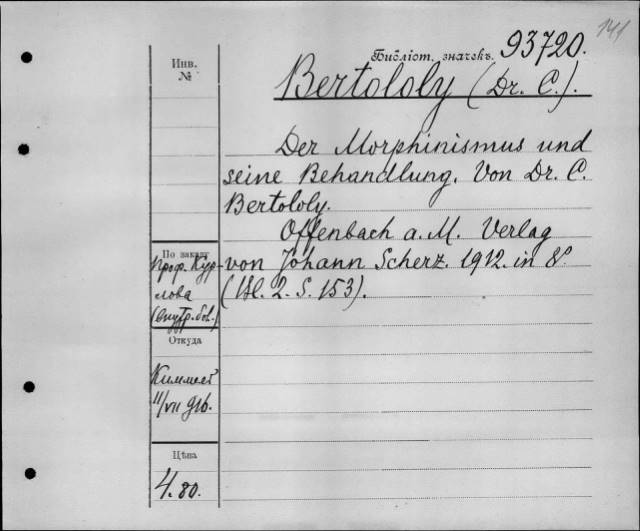 141
Библіот. значекъ. 93720.
Инв.
№
Bertololy (Dr. C.).
Der Morphinismus und
seine Behandlung. Von Dr. C.
Bertololy.
Offenbach a. M. Verlag
von Johann Scherz. 1912. in 8º
(Bl. 2. S. 153).
По заказу
Проф. Кур-
лова
(внутр. бол.)
Откуда
Киммель
11/VII 916.
Цѣна
4.80.